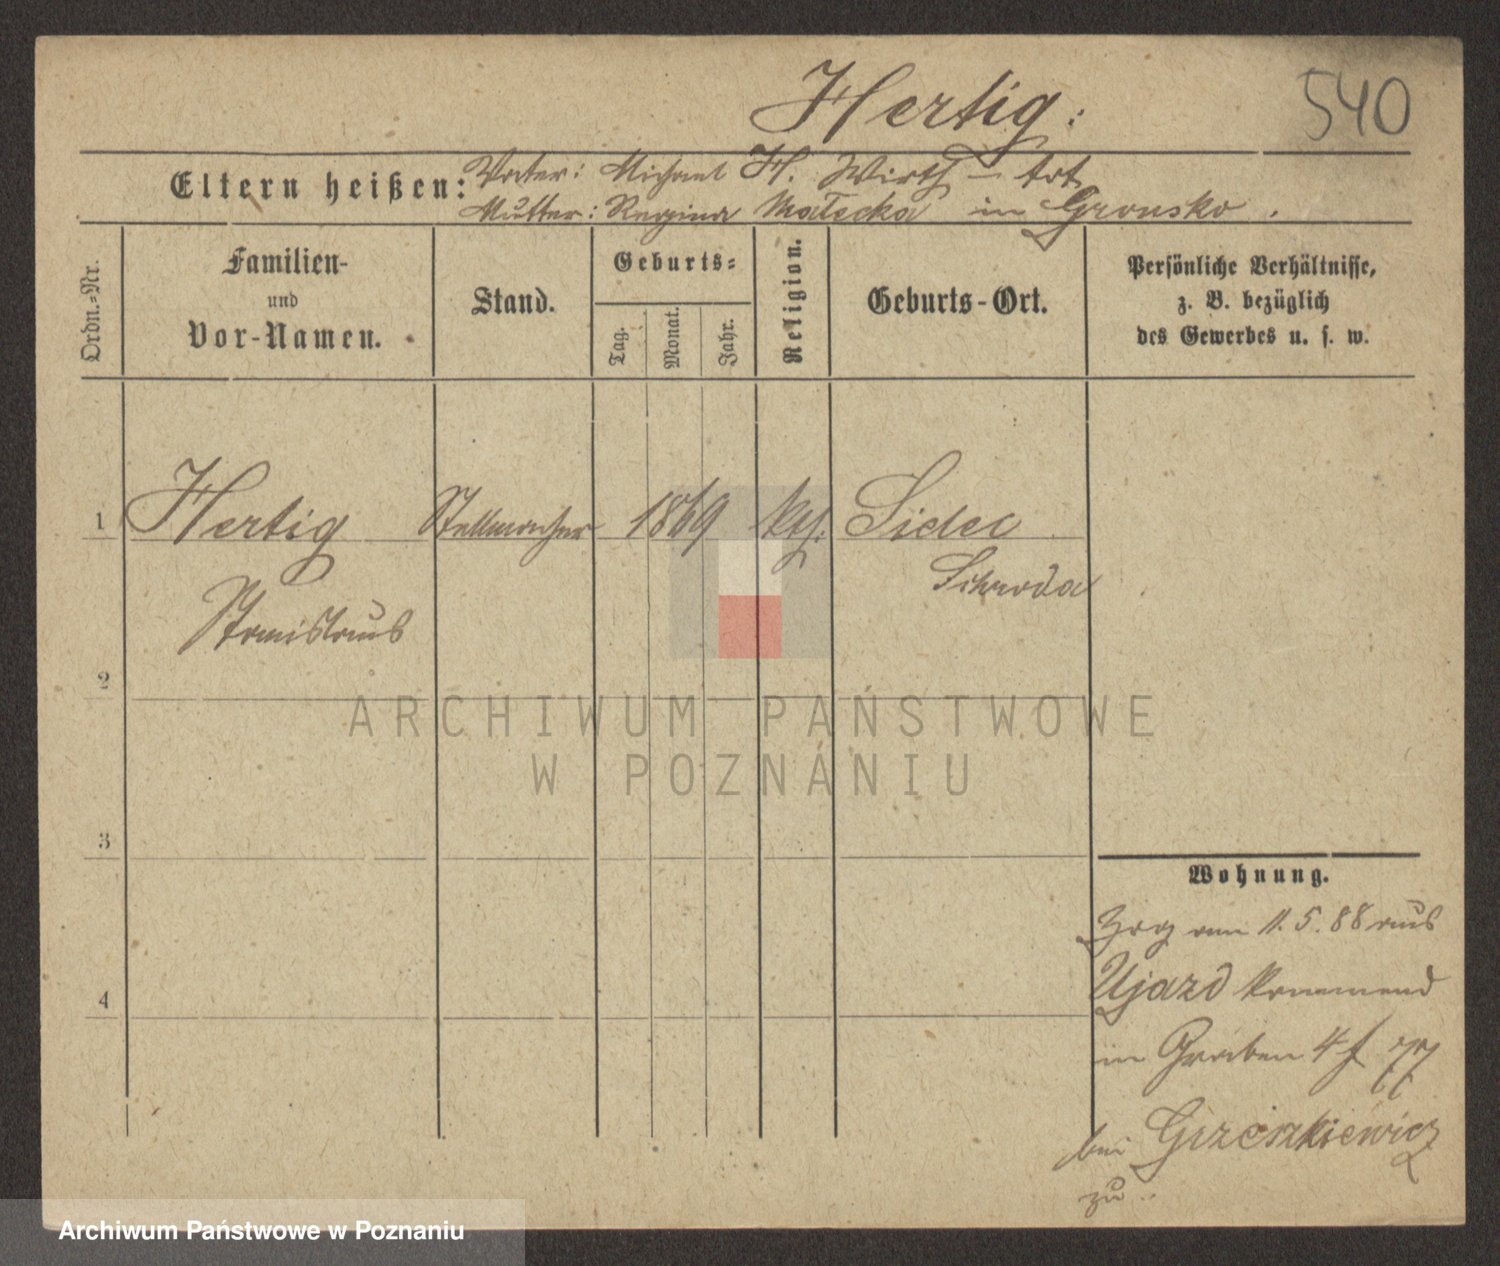 Hertig.
540
Eltern heißen:
Vater: Michael H. Wirth
Mutter: Regina Małecka in Gronsko.
Ordn.-Nr.
Familien-
und
Vor-Namen.
Stand.
Geburts-
Tag.
Monat.
Jahr.
Religion.
Geburts-Ort.
Persönliche Verhältnisse,
z. B. bezüglich
des Gewerbes u. s. w.
1 Hertig Stellmacher 1869 kth. Sidec
Schroda
Stanislaus
2
ARCHIWUM PAŃSTWOWE
W POZNANIU
3
4
Wohnung.
Zzg vom 11.5.88 aus
Ujazd kommend
in Graben 4
bei Grzeszkiewicz
zu
Archiwum Państwowe w Poznaniu